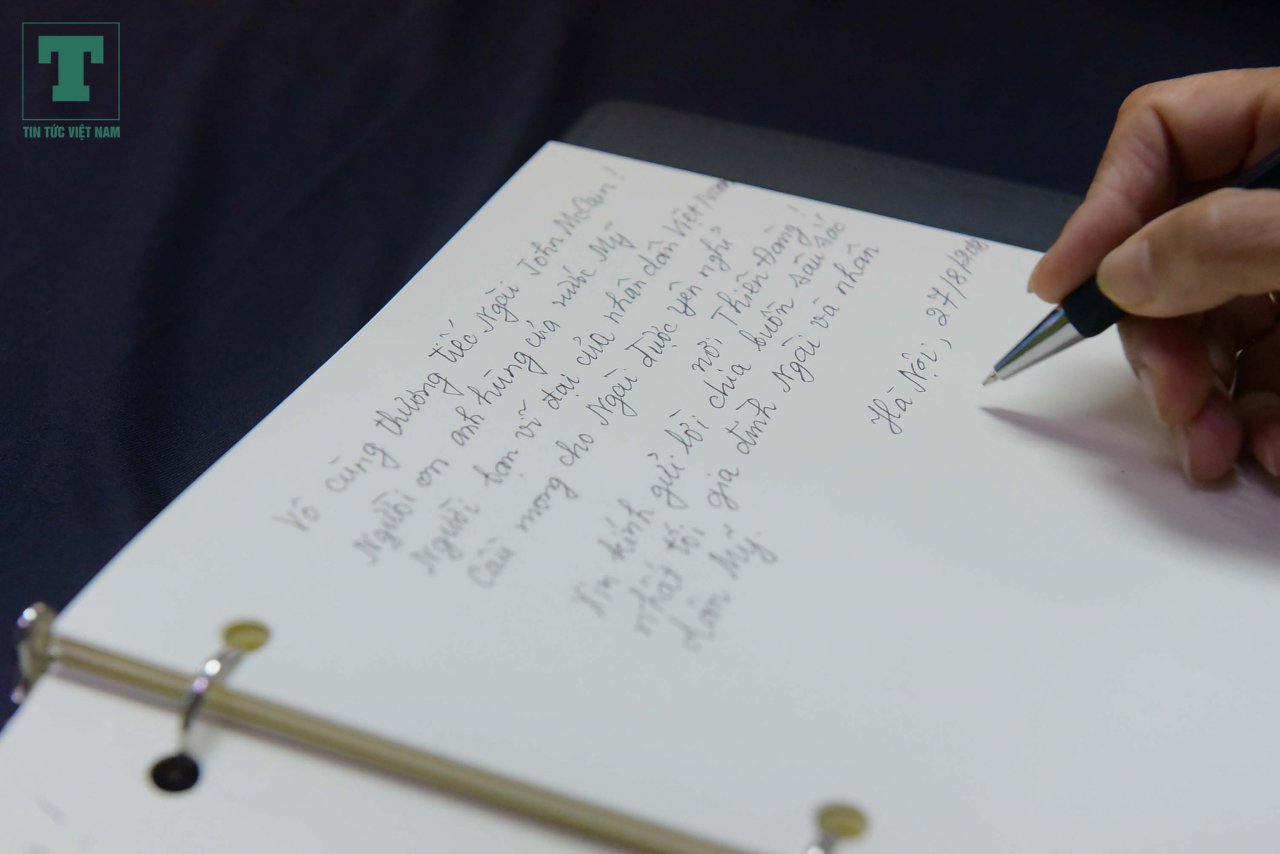 T
TIN TỨC VIỆT NAM
Vô cùng thương tiếc Ngài John McCain!
Người on anh hùng của nước Mỹ
Người bạn vĩ đại của nhân dân Việt Nam
Cầu mong cho Ngài được yên nghỉ
nơi Thiên Đàng!
Xin kính gửi lời chia buồn sâu sắc
nhất tới gia đình Ngài và nhân
dân Mỹ.
Hà Nội, 27/8/2018